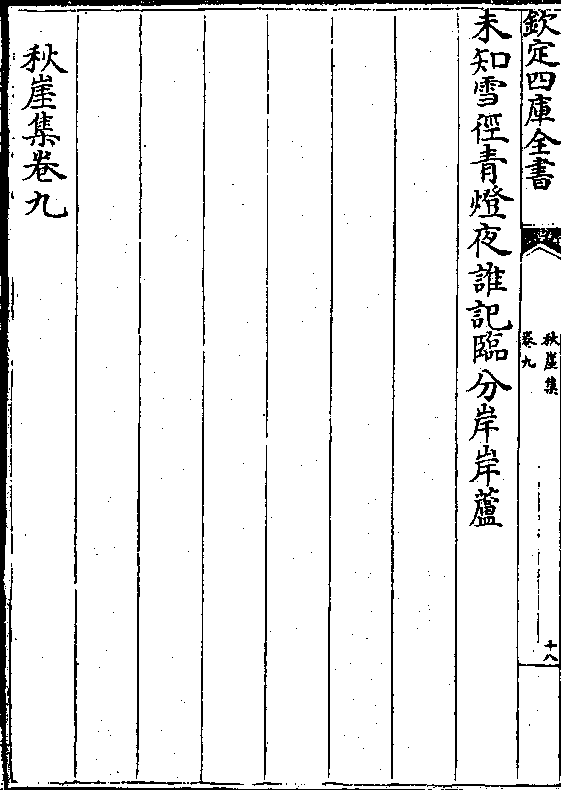 欽定四庫全書
秋崖集
卷九
十八
未知雪徑青燈夜誰記臨分岸岸蘆
秋崖集卷九